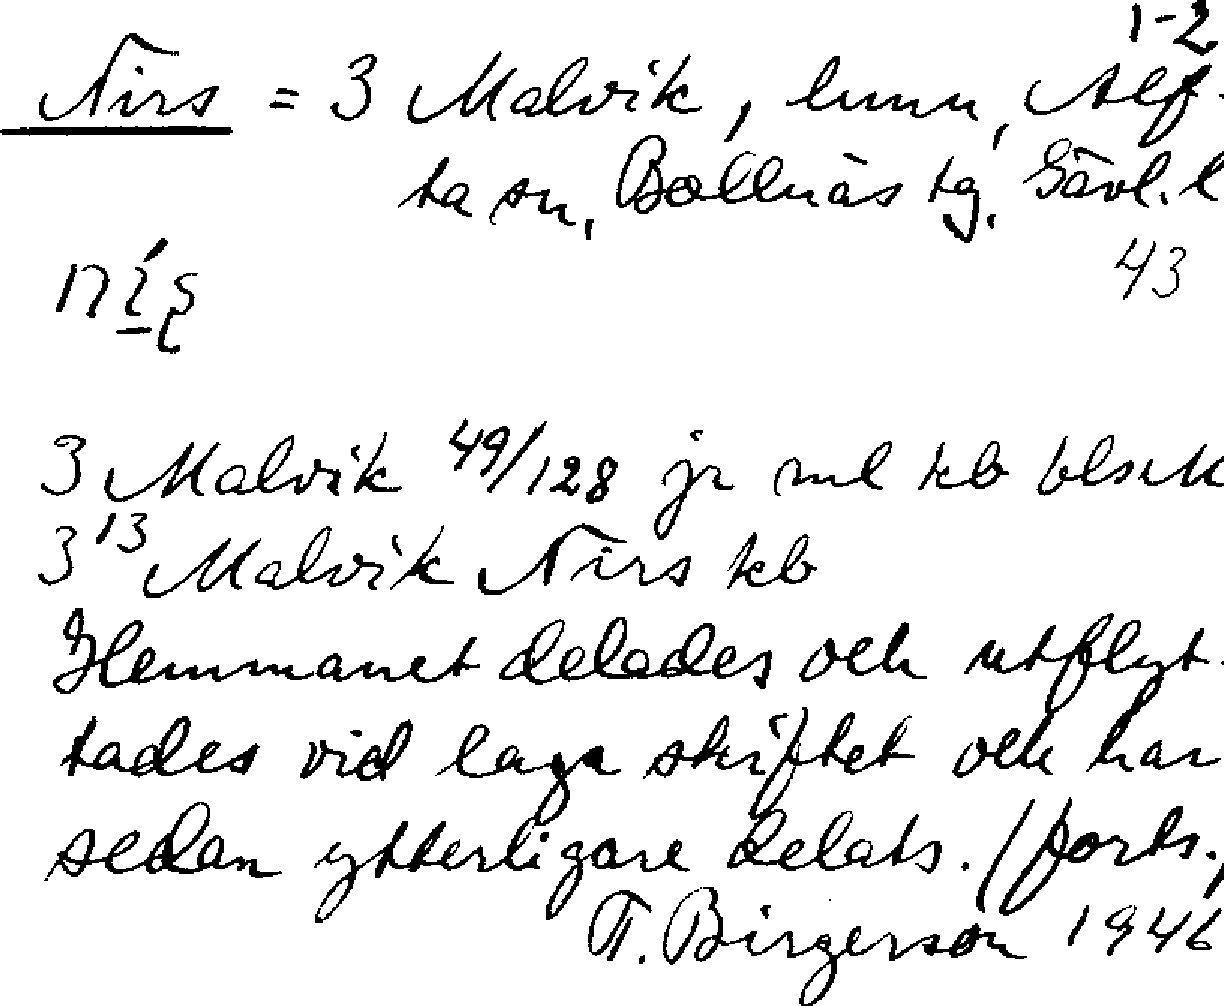 1-2
Nirs = 3 Malvik, hmn, Alf-
ta sn, Bollnäs tg. Gävl. l
43
3 Malvik 49/128 jr ml kb
3 13 Malvik Nirs kb
Hemmanet delades och utflyt-
tades vid laga skiftet och har
sedan ytterligare delats. (forts.)
T. Birgerson 1946